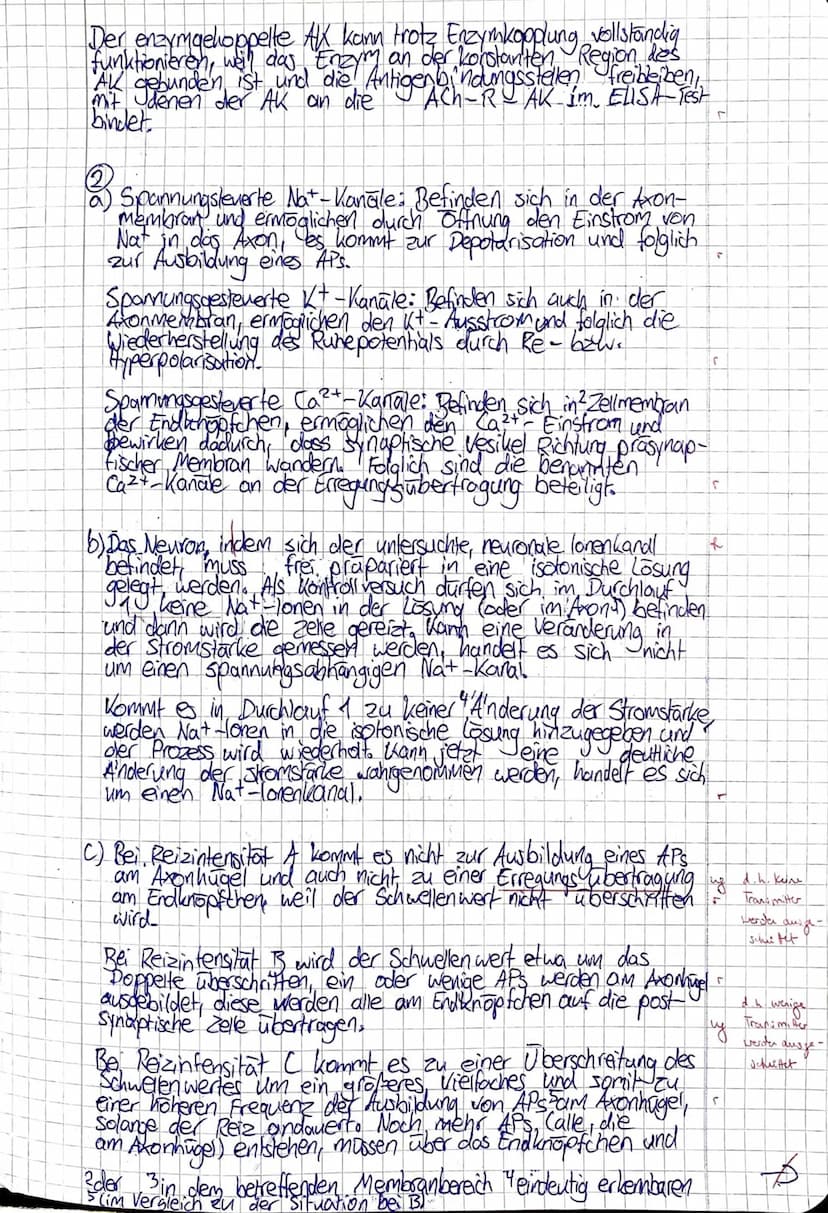 Der enzymgekoppelte AK kann trotz Enzymkopplung vollständig
funktionieren, weil das Enzym an der konstanten Region des
AK gebunden ist und die Antigenbindungsstellen freibleiben,
mit denen der AK an die ACh-R-AK im ELISA-Test
bindet.
r
②
a) Spannungsteuerte Na⁺-Kanäle: Befinden sich in der Axon-
membran und ermöglichen durch Öffnung den Einstrom von
Na⁺ in das Axon, es kommt zur Depolarisation und folglich
zur Ausbildung eines APs.
r
Spannungsgesteuerte K⁺-Kanäle: Befinden sich auch in der
Axonmembran, ermöglichen den K⁺-Ausstrom und folglich die
Wiederherstellung des Ruhepotentials durch Re- bzw.
Hyperpolarisation.
r
Spannungsgesteuerte Ca²⁺-Kanäle: Befinden sich in ² Zellmembran
der Endknöpfchen, ermöglichen den Ca²⁺-Einstrom und
bewirken dadurch, dass synaptische Vesikel Richtung präsynap-
tischer Membran wandern. Folglich sind die benannten
Ca²⁺-Kanäle an der Erregungsübertragung beteiligt.
r
b) Das Neuron, indem sich der untersuchte, neuronale Ionenkanal
befindet, muss frei präpariert in eine isotonische Lösung
gelegt werden. Als Kontrollversuch dürfen sich im Durchlauf
1 keine Na⁺-Ionen in der Lösung (oder im Axon ³) befinden
und dann wird die Zelle gereizt. Kann eine Veränderung in
der Stromstärke gemessen werden, handelt es sich nicht
um einen spannungsabhängigen Na⁺-Kanal.
Kommt es in Durchlauf 1 zu keiner ⁴ Änderung der Stromstärke,
werden Na⁺-Ionen in die isotonische Lösung hinzugegeben und
der Prozess wird wiederholt. Kann jetzt eine deutliche
Änderung der Stromstärke wahrgenommen werden, handelt es sich
um einen Na⁺-Ionenkanal.
r
c) Bei Reizintensität A kommt es nicht zur Ausbildung eines APs
am Axonhügel und auch nicht zu einer Erregungsübertragung
am Endknöpfchen, weil der Schwellenwert nicht überschritten
wird.
ug d.h. keine
r Transmitter
werden ausge-
schüttet
Bei Reizintensität B wird der Schwellenwert etwa um das
Doppelte überschritten, ein oder wenige APs werden am Axonhügel
ausgebildet, diese werden alle am Endknöpfchen auf die post-
synaptische Zelle übertragen.
r
d.h. wenige
ug Transmitter
werden ausge-
schüttet
Bei Reizintensität C kommt es zu einer Überschreitung des
Schwellenwertes um ein größeres Vielfaches und somit zu
einer höheren Frequenz der Ausbildung von APs ⁵ am Axonhügel,
solange der Reiz andauert. Noch mehr APs, (alle, die
am Axonhügel) entstehen, müssen über das Endknöpfchen und
r
² der ³ in dem betreffenden Membranbereich ⁴ eindeutig erkennbaren
⁵ (im Vergleich zu der Situation bei B)